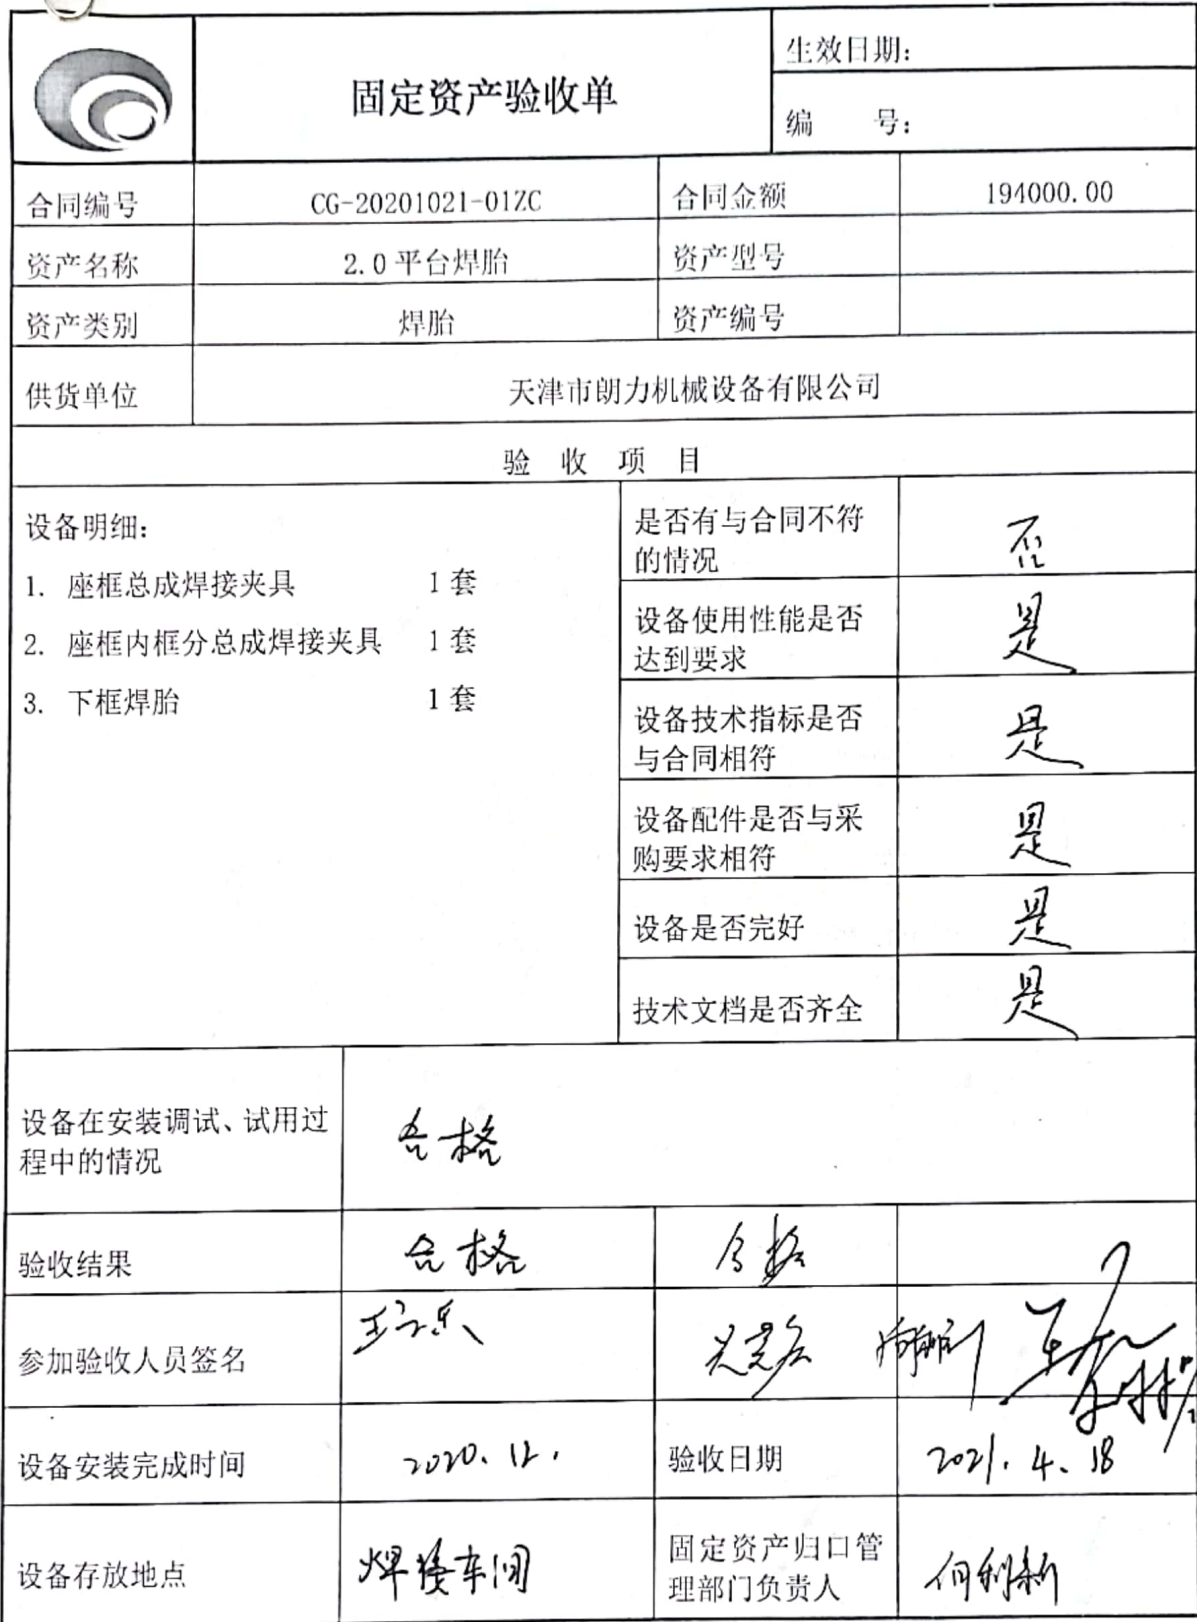 固定资产验收单
生效日期:
编 号:
合同编号 CG-20201021-01ZC 合同金额 194000.00
资产名称 2.0平台焊胎 资产型号
资产类别 焊胎 资产编号
供货单位 天津市朗力机械设备有限公司
验 收 项 目
设备明细:
1. 座框总成焊接夹具 1套
2. 座框内框分总成焊接夹具 1套
3. 下框焊胎 1套
是否有与合同不符
的情况
否
设备使用性能是否
达到要求
是
设备技术指标是否
与合同相符
是
设备配件是否与采
购要求相符
是
设备是否完好 是
技术文档是否齐全 是
设备在安装调试、试用过
程中的情况
合格
验收结果 合格 合格
参加验收人员签名
设备安装完成时间 2020.12. 验收日期 2021.4.18
设备存放地点 焊接车间
固定资产归口管
理部门负责人
何利新